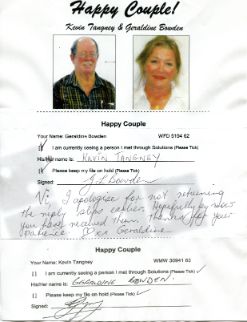 Happy Couple!
Kevin Tangney & Geraldine Bowden
Happy Couple
Your Name: Geraldine Bowden WFD 5104 62
I am currently seeing a person I met through Solutions (Please Tick)
His/Her name is: KAVIN TANGNEY
Please keep my file on hold (Please Tick)
Signed: G Bowden
I apologise for not returning
the reply slips earlier. Hopefully by now
you have received them. Thanks for your
Geraldine
Happy Couple
Your Name: Kevin Tangney WMW 36941 63
I am currently seeing a person I met through Solutions (Please Tick)
His/Her name is: GERALDINE BOWDEN
Please keep my file on hold (Please Tick)
Signed: